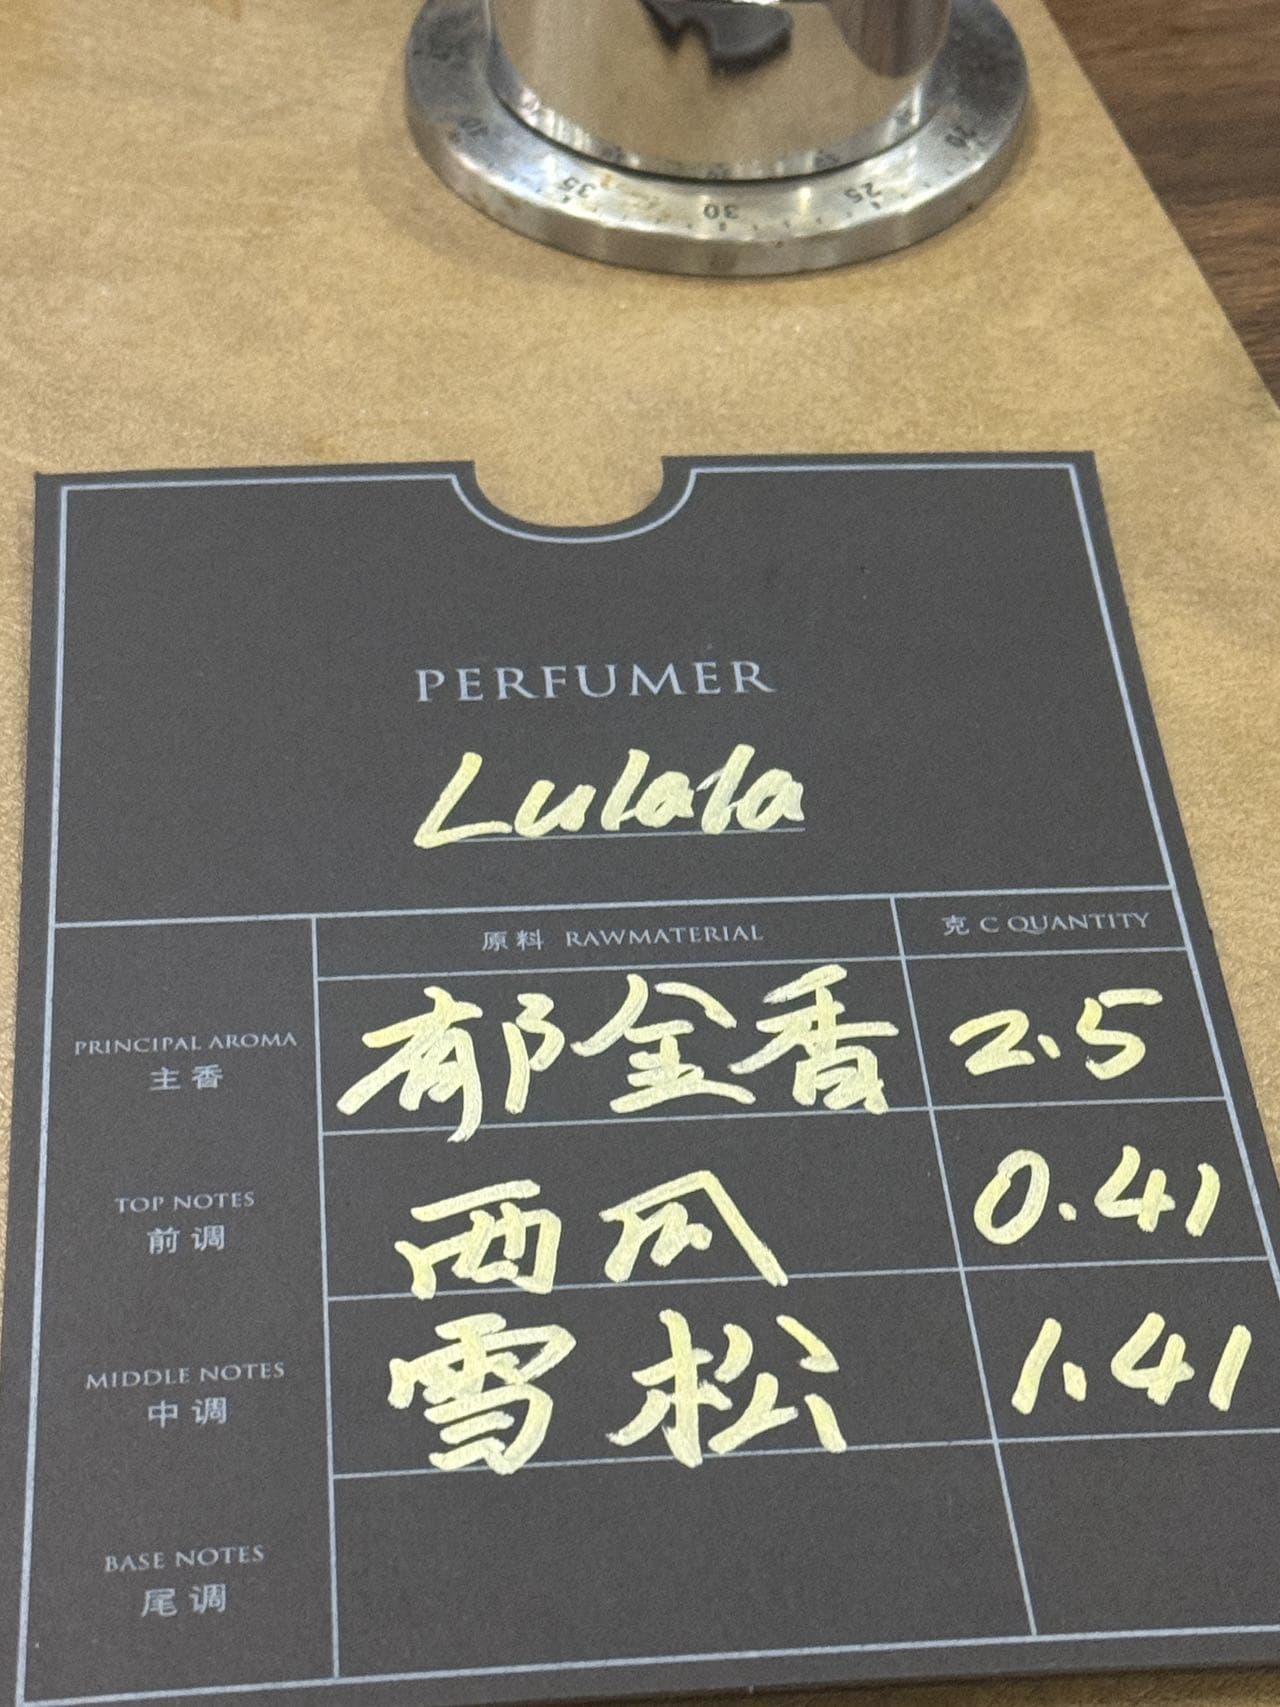 35
30
25
20
PERFUMER
Lulala
原料 RAWMATERIAL
克 C QUANTITY
PRINCIPAL AROMA
主香
郁金香
2.5
TOP NOTES
前调
西瓜
0.41
MIDDLE NOTES
中调
雪松
1.41
BASE NOTES
尾调